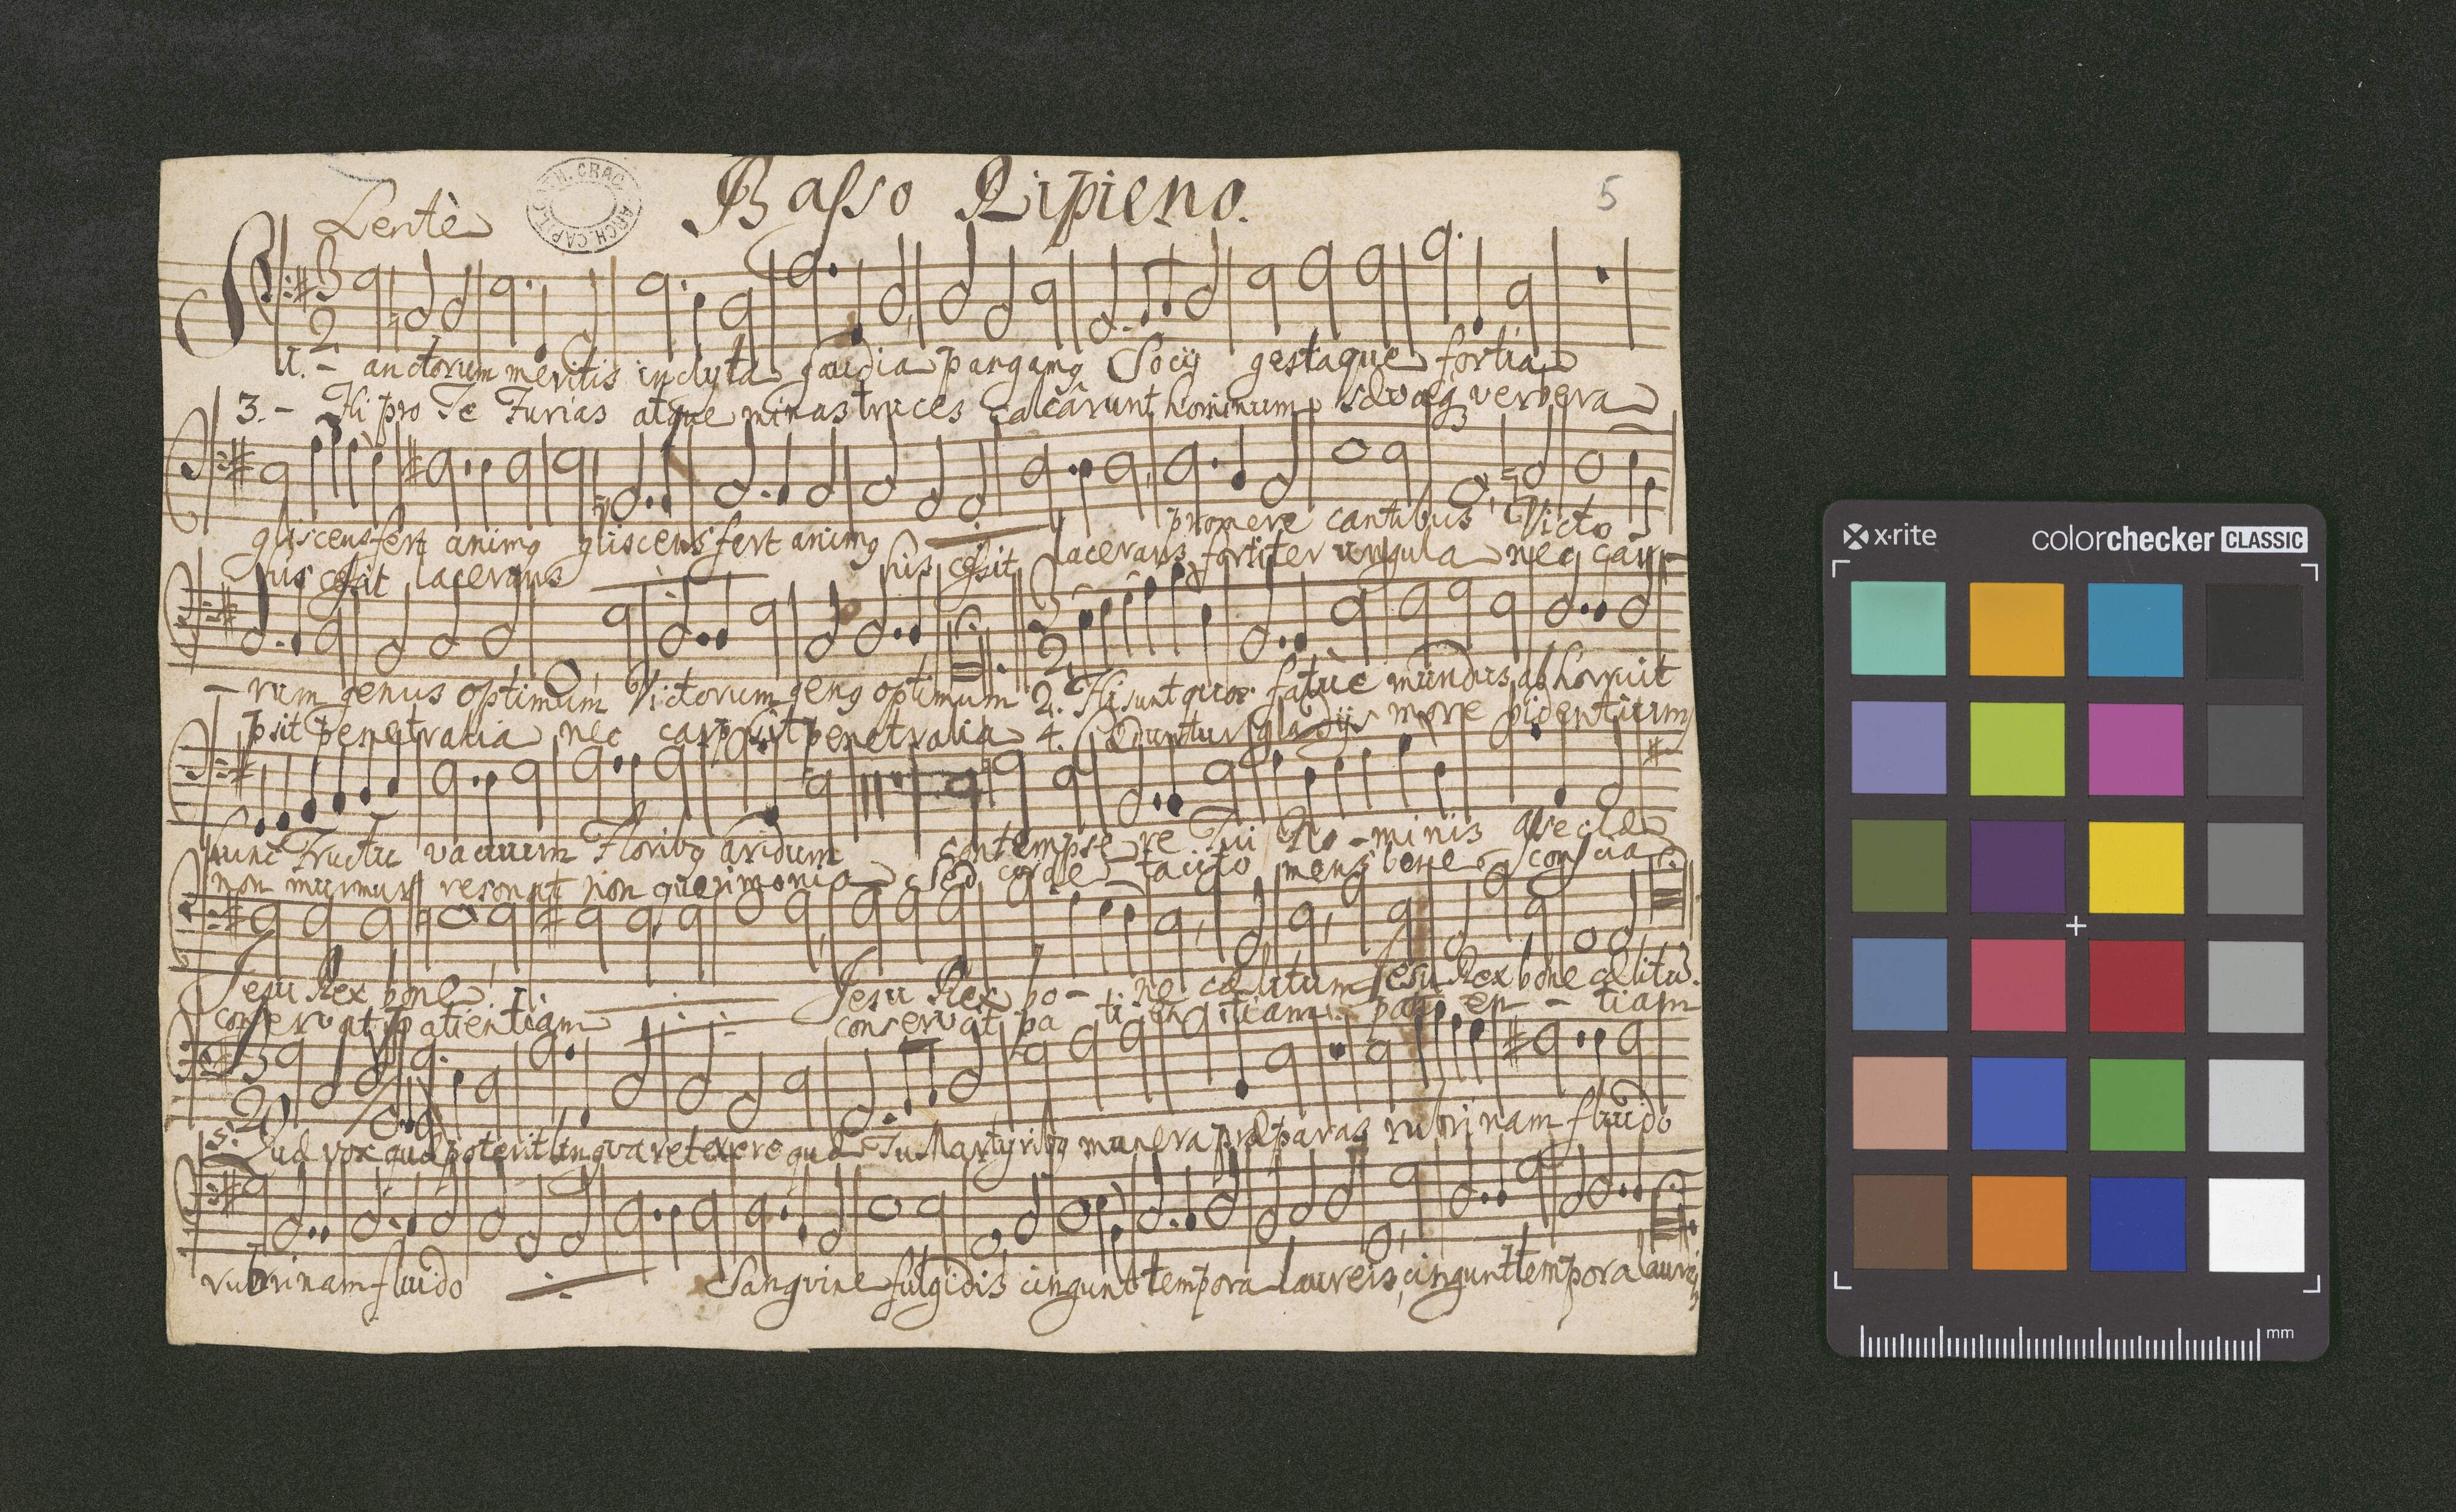 Basso Ripieno.
5
Lentè
CATH. CRAC. ARCH. CAPIT.
3
2
S
1. - anctorum meritis inclyta gaudia pangamq Socij gestaque fortia
3. - Hi pro Te Furias atque minas truces calcârunt hominum sævaq verbera
gliscens fert animq gliscens fert animq promere cantibus Victo
his cessit lacerans his cessit lacerans fortiter ungula nec car
3
2
- rum genus optimum Victorum genq optimum 2. Hi sunt quos fatùe mundus abhorruit
psit penetralia nec carpsit penetralia 4. Cæduntur gladijs more bidentium
hunc Fructu vacuum Floribq aridum contempse re Tui No - minis asseclæ
non murmur resonat non querimonia sed corde tacito mens bene conscia
Jesu Rex bone Jesu Rex bo - ne cælitum Jesu Rex bone cælitũ.
conservat patientiam conservat pa ti en tiam pati en - tiam
3
2
5. Quæ vox quæ poterit lingva retexere quæ Tu Martyribq munera præparas rubri nam fluido
rubri nam fluido Sangvine fulgidis cingunt tempora laureis, cingunt tempora laureis
x·rite
colorchecker CLASSIC
mm